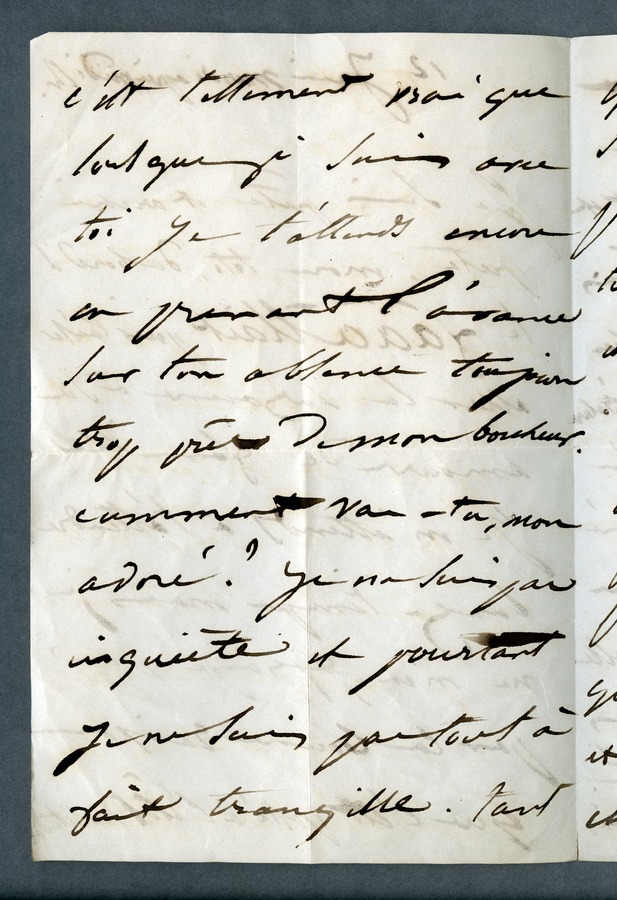 c'est tellement vrai que
lorsque je suis avec
toi je t'attends encore
en prenant l'avance
sur ton absence toujours
trop près de mon bonheur.
comment vas-tu, mon
adoré ? je ne suis pas
inquiète et pourtant
je ne suis pas tout à
fait tranqille. tant